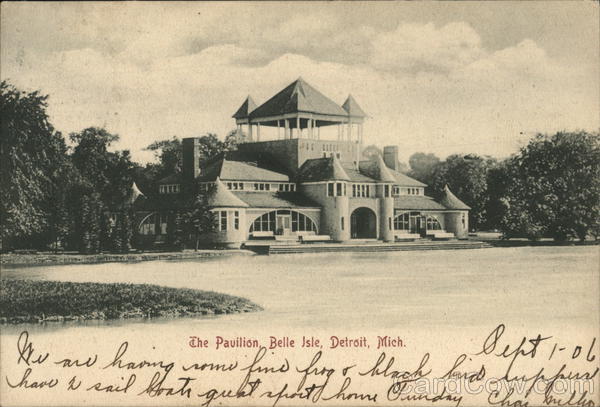 The Pavilion, Belle Isle, Detroit, Mich.
Sept 1-06
We are having some fine frog & black bird suppers
have 2 sail boats great sport home Sunday Chas
CardCow.com